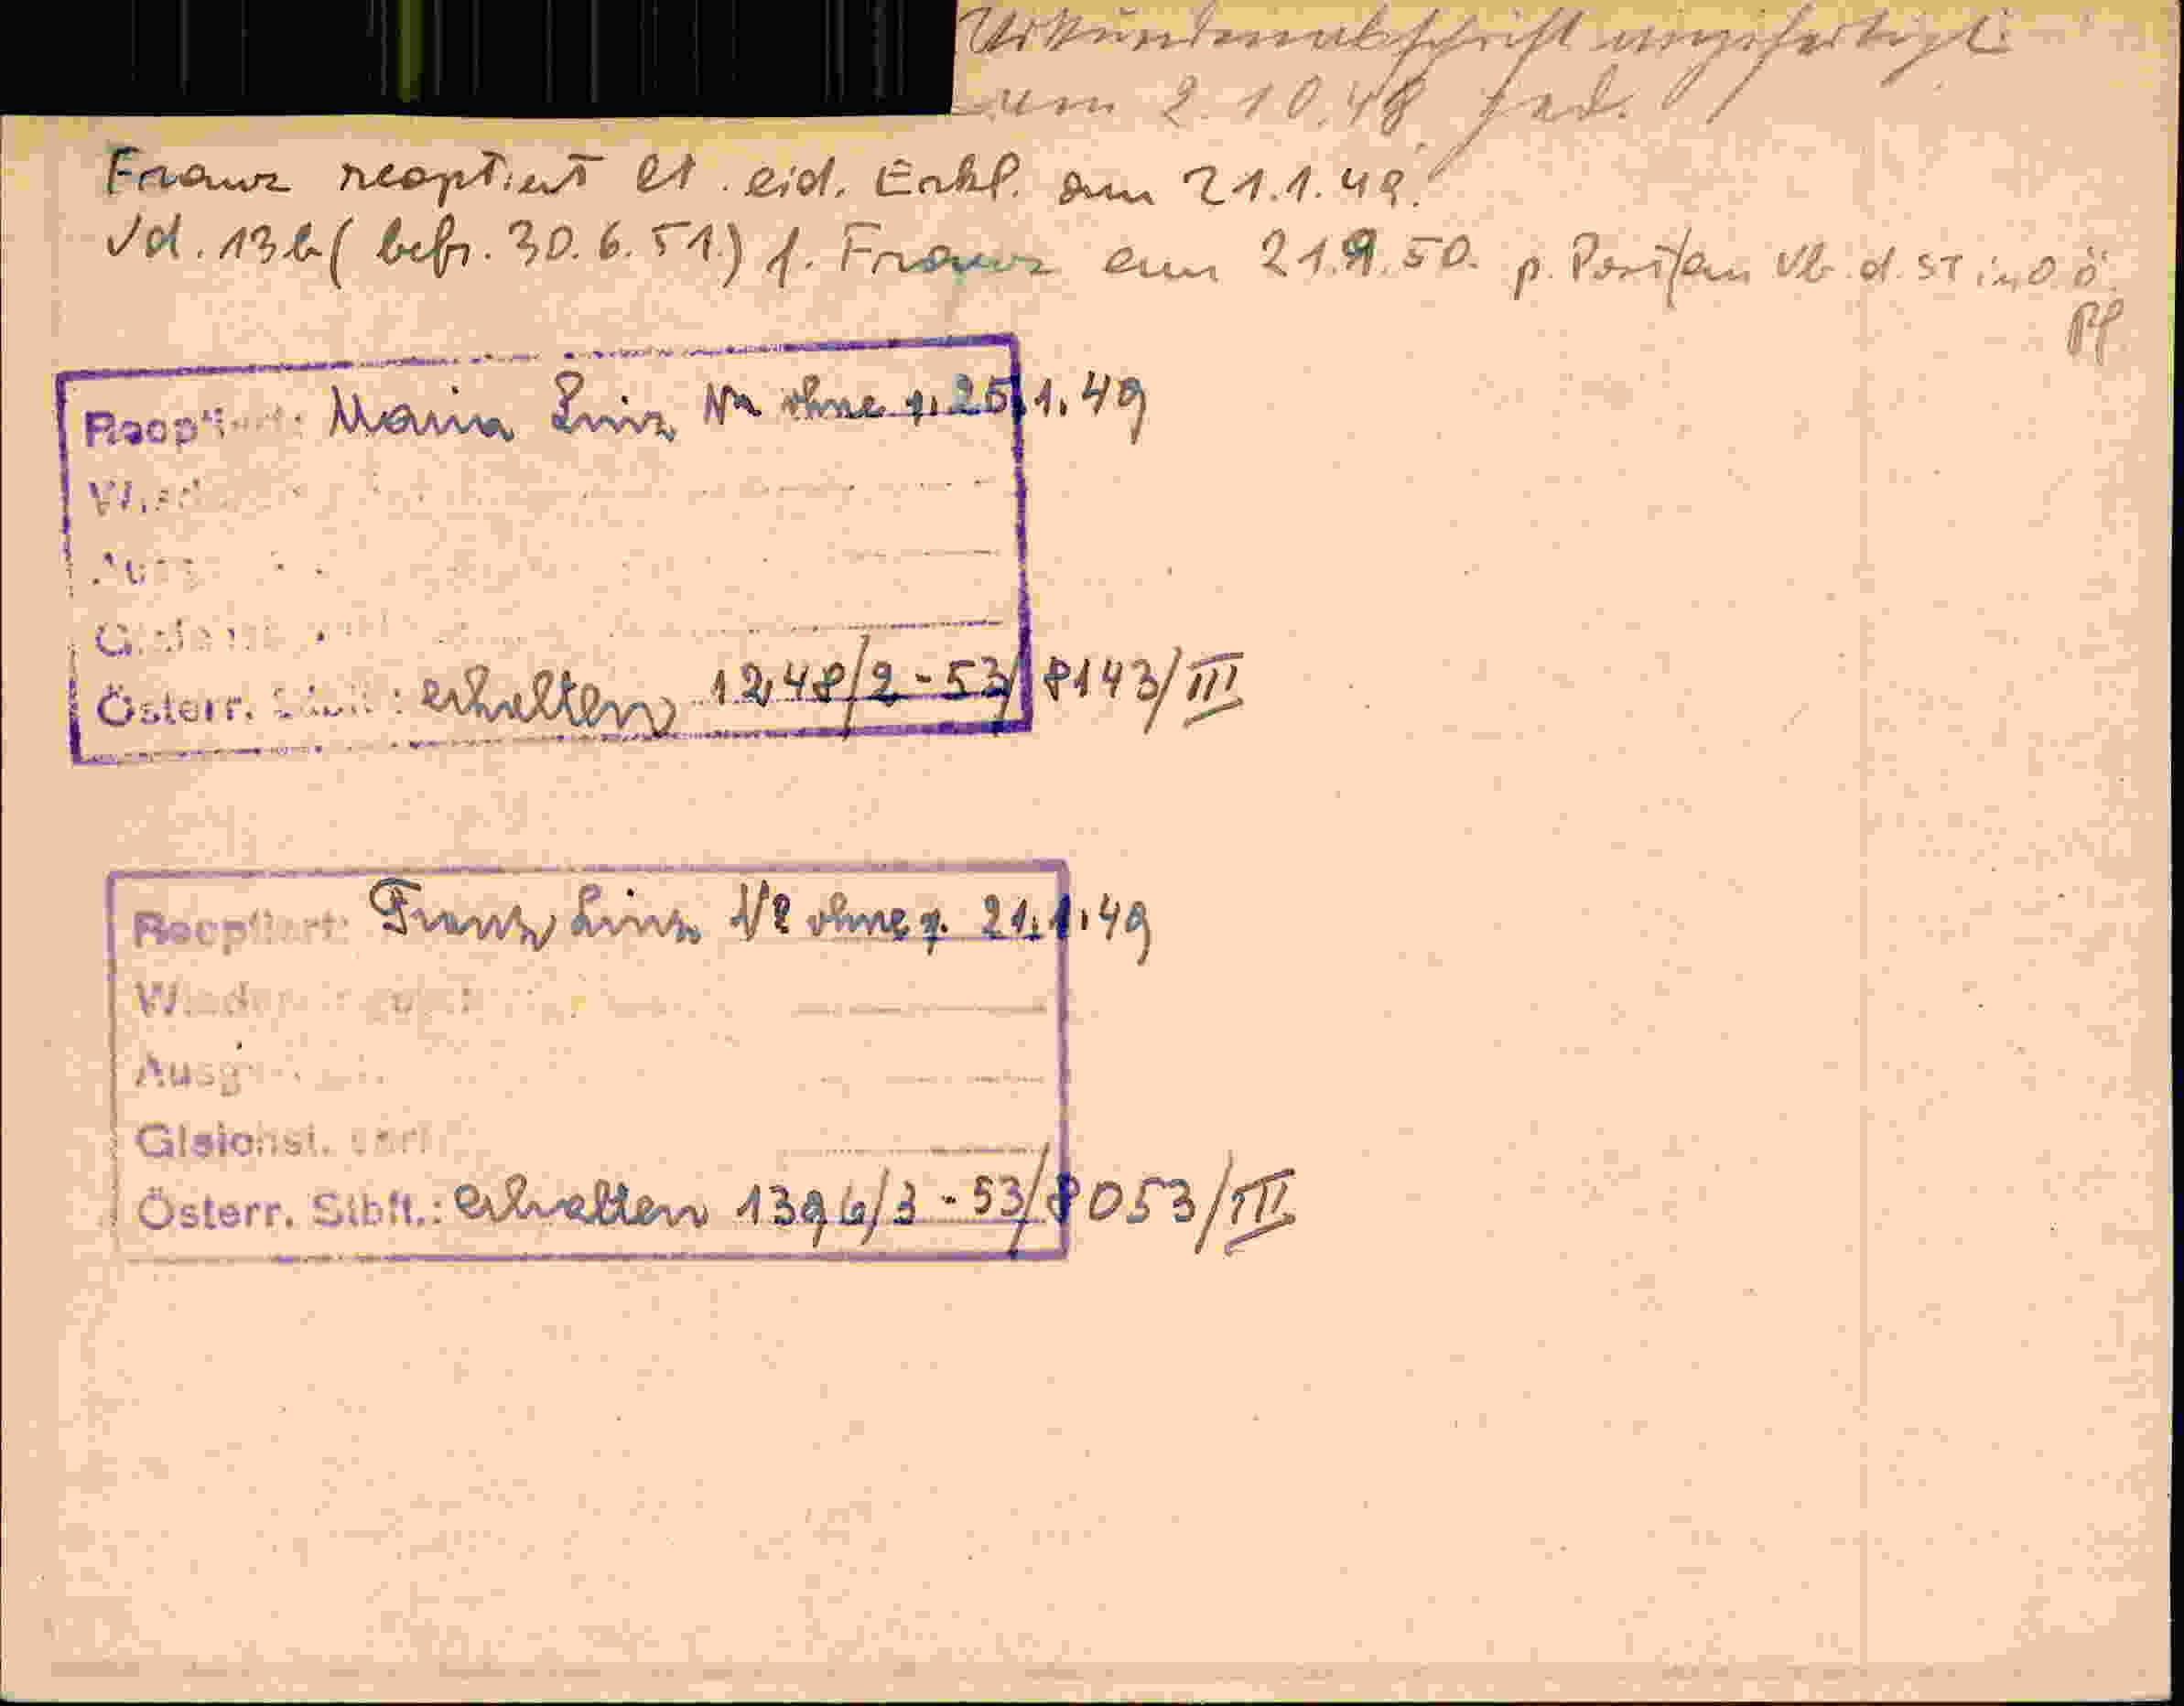 Urkundenabschrift angefertigt
am 2.10.48
Franz reoptiert lt. eid. Erkl. am 21.1.49.
Vd. 13b (befr. 30.6.51.) f. Franz am 21.9.50. p. Post/an Vb. d. ST in OÖ.
Reoptiert: Maria Linz Nr ohne v. 25.1.49
Österr. erhalten 1248/2-53/8143/III
Reoptiert: Franz Linz Nr ohne v. 21.1.49
Wieder
Ausg
Gleichst.
Österr. Stbft.: erhalten 1396/3-53/8053/III